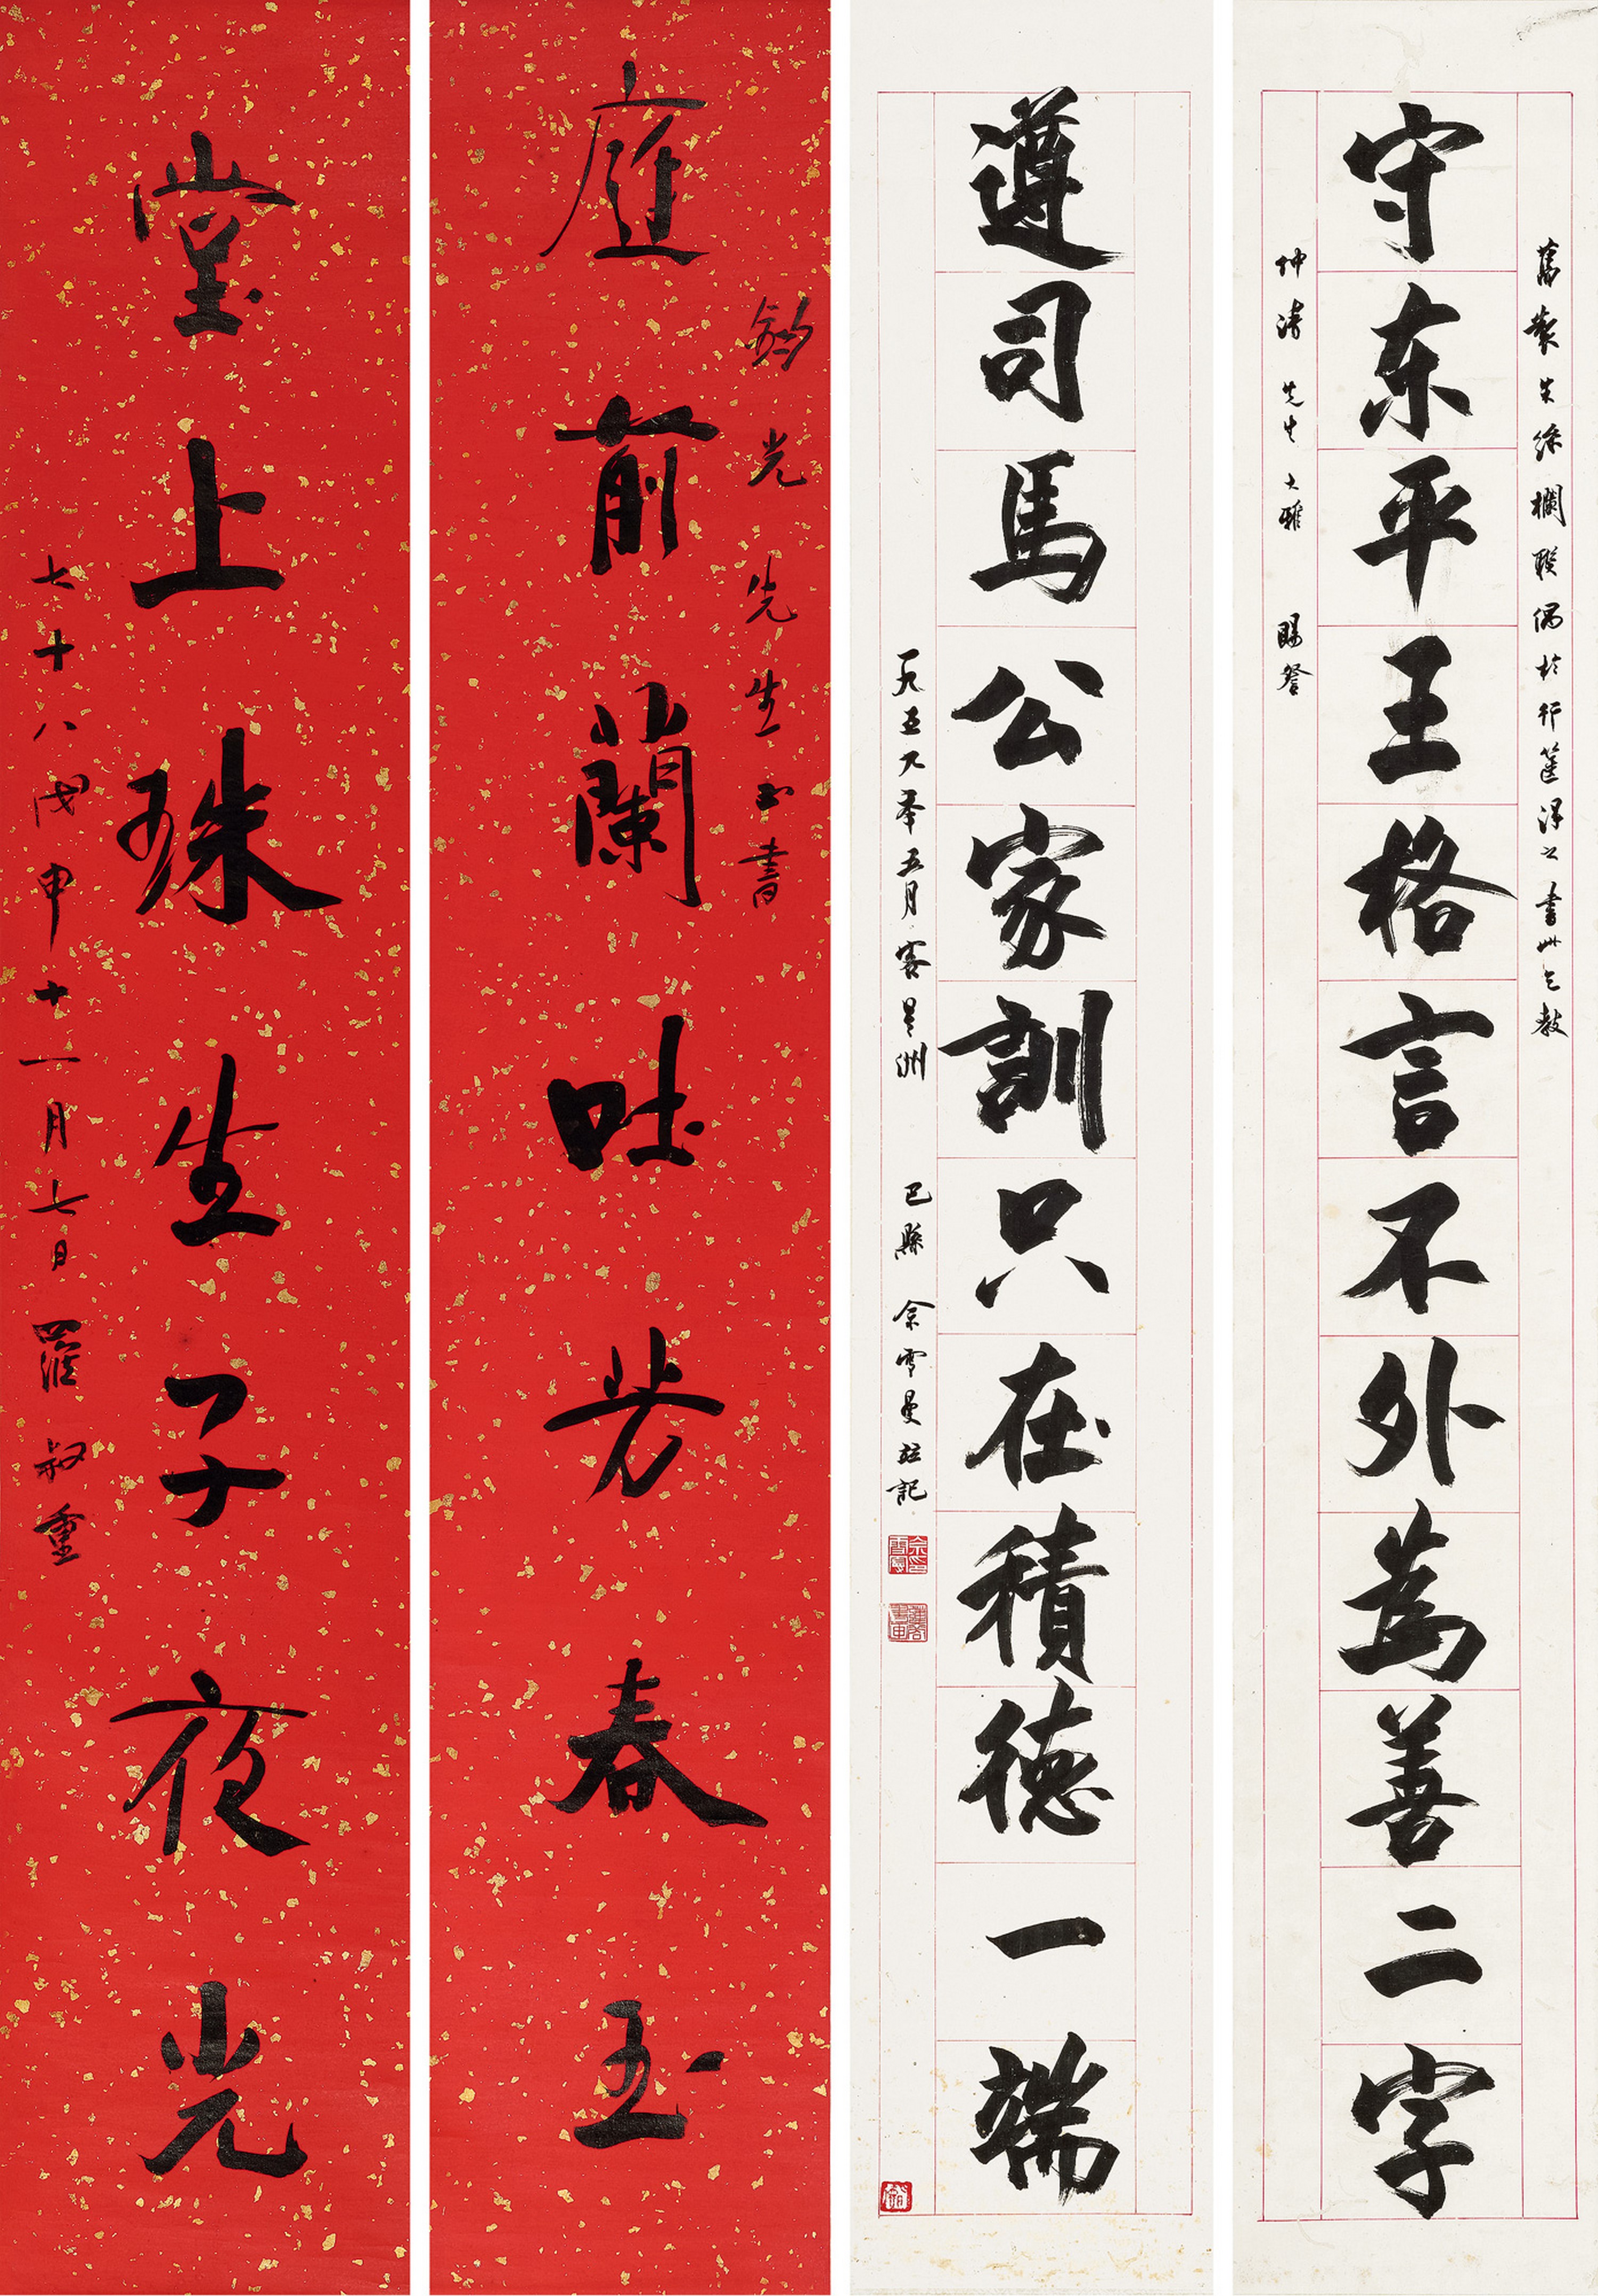 舊製朱絲欄聯偶於行篋得之書此乞教
守东平王格言不外為善二字
坤濤先生大雅 賜詧
遵司馬公家訓只在積德一端
一九五八年五月客星洲 巴縣 余雪曼并記
鈞光先生正書
庭前蘭吐芳春玉
堂上珠生子夜光
七十八戊申十一月七日羅叔重